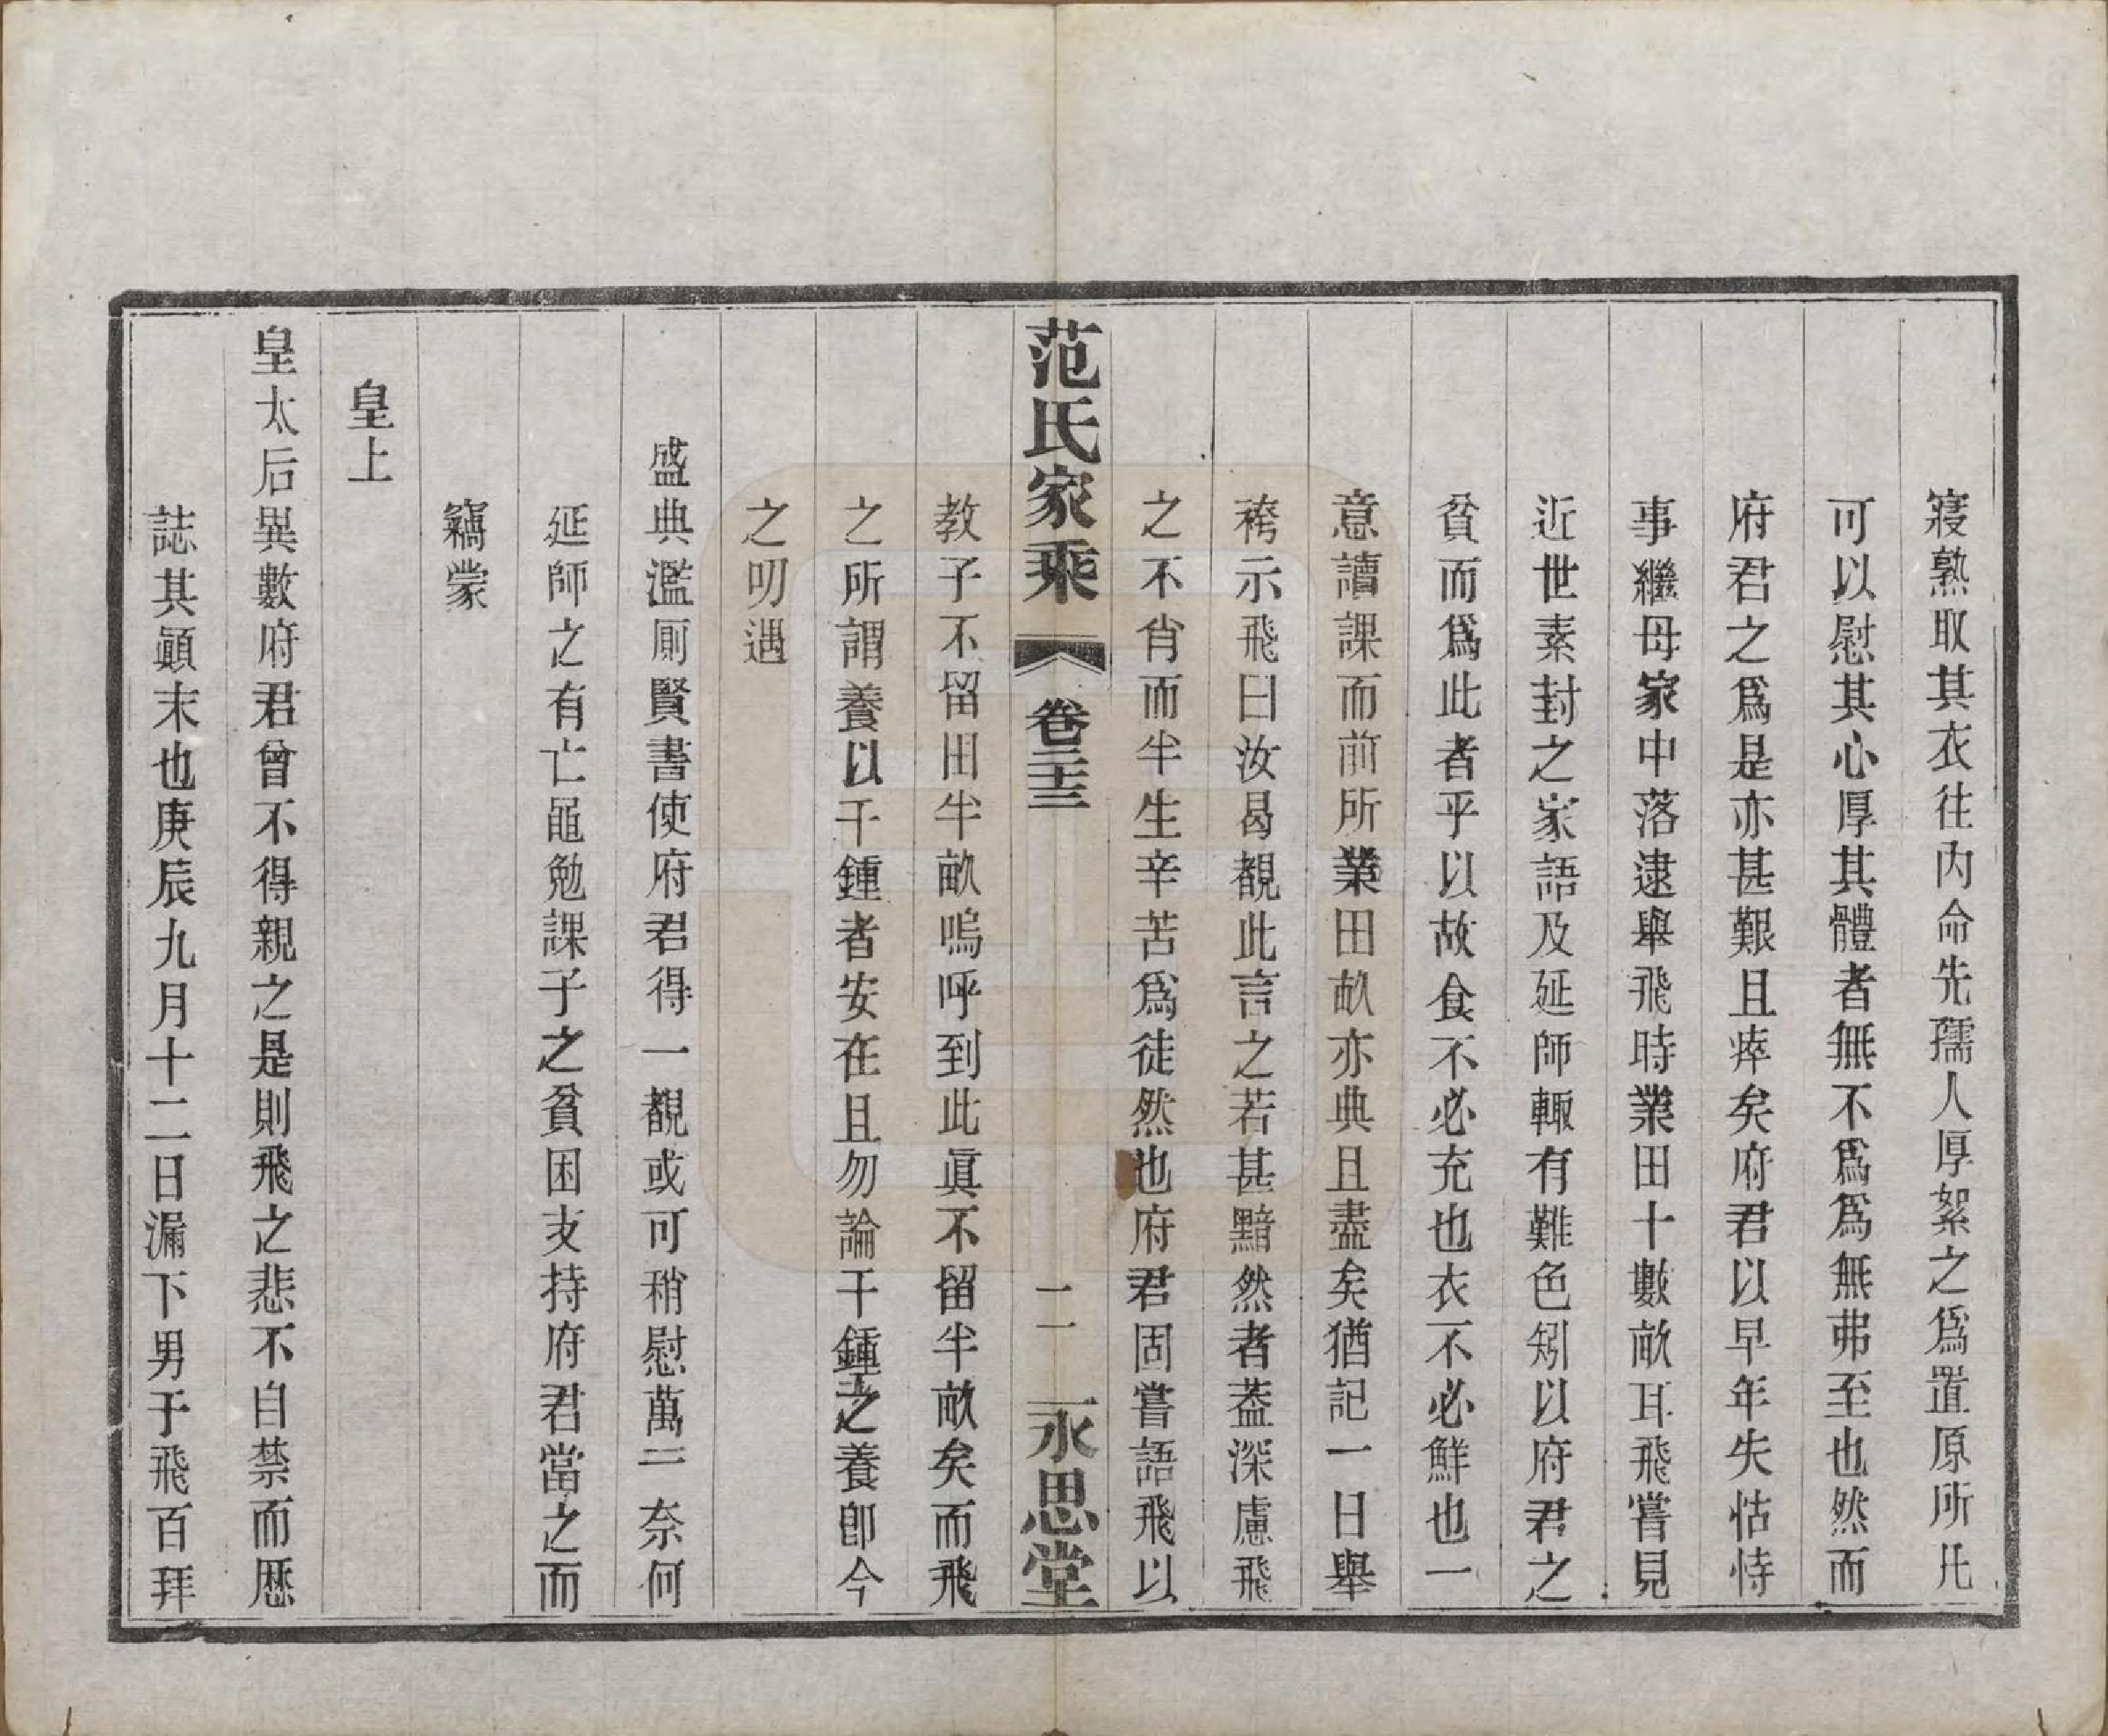 寢熟取其衣往內命先孺人厚絮之爲置原所凡
可以慰其心厚其體者無不爲爲無弗至也然而
府君之爲是亦甚艱且瘁矣府君以早年失怙恃
事繼母家中落逮舉飛時業田十數畝耳飛嘗見
近世素封之家語及延師輒有難色矧以府君之
貧而爲此者乎以故食不必充也衣不必鮮也一
意讀課而前所業田畝亦典且盡矣猶記一日舉
袴示飛曰汝曷覩此言之若甚黯然者葢深慮飛
之不肖而半生辛苦爲徒然也府君固嘗語飛以
范氏家乘 卷二十三 二 永思堂
教子不留田半畝嗚呼到此眞不留半畝矣而飛
之所謂養以千鍾者安在且勿論千鍾之養卽今
之叨遇
盛典濫厠賢書使府君得一覩或可稍慰萬一奈何
延師之有亡黽勉課子之貧困支持府君當之而
竊蒙
皇上
皇太后異數府君曾不得親之是則飛之悲不自禁而歷
誌其顚末也庚辰九月十二日漏下男于飛百拜